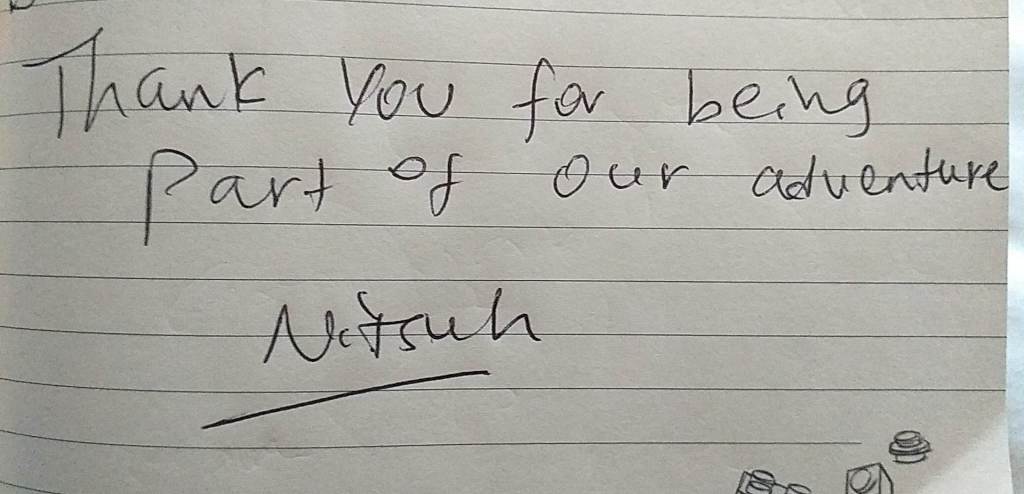 Thank you for being
Part of our adventure
Natsuh